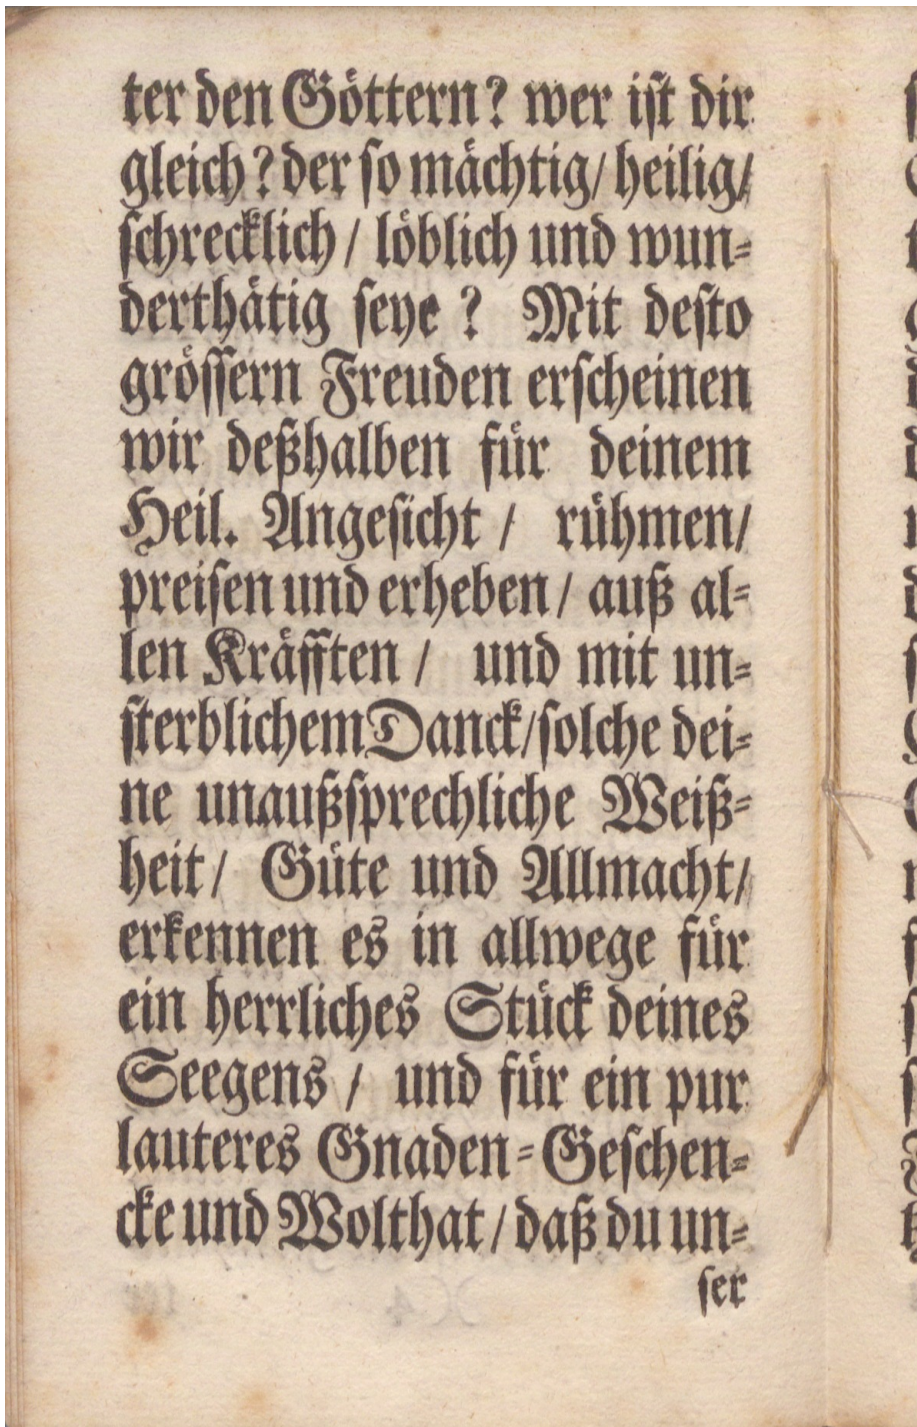 ter den Göttern? wer ist dir
gleich? der so mächtig/ heilig/
schrecklich / löblich und wun-
derthätig seye ? Mit desto
grössern Freuden erscheinen
wir deßhalben für deinem
Heil. Angesicht / rühmen/
preisen und erheben / auß al-
len Kräfften / und mit un-
sterblichem Danck/ solche dei-
ne unaußsprechliche Weiß-
heit / Güte und Allmacht/
erkennen es in allwege für
ein herrliches Stück deines
Seegens / und für ein pur
lauteres Gnaden-Geschen-
cke und Wolthat / daß du un-
ser